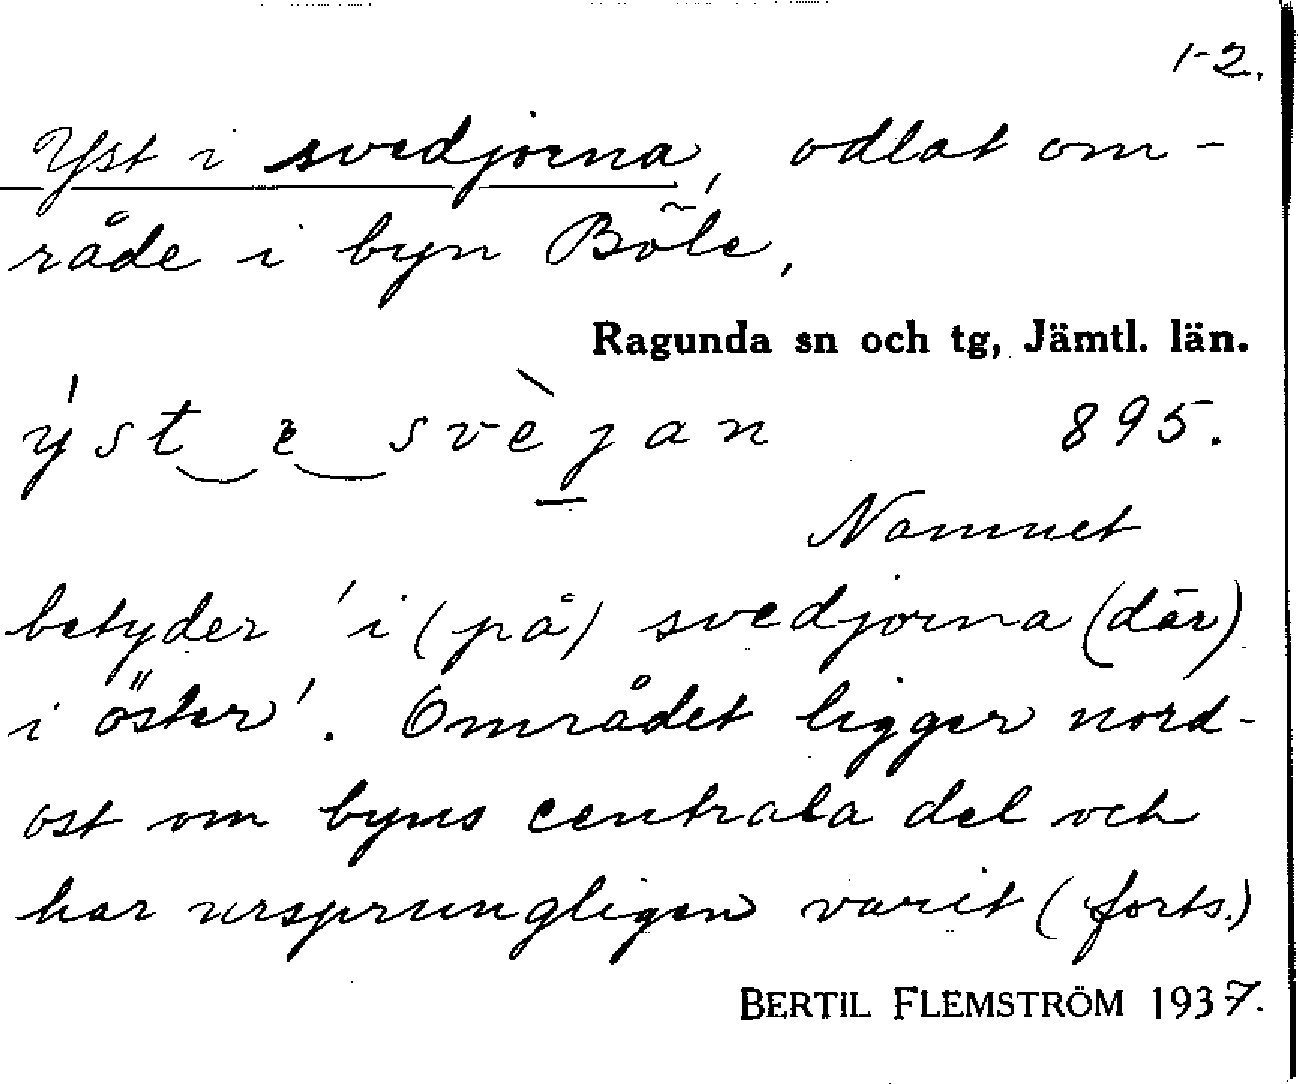 1-2.
Yst i svedjorna, odlat om-
råde i byn Böle,
Ragunda sn och tg, Jämtl. län.
ýst e svèjan 895.
Namnet
betyder 'i (på) svedjorna (där)
i öster'. Området ligger nord-
ost om byns centrala del och
har ursprungligen varit (forts.)
BERTIL FLEMSTRÖM 1937.